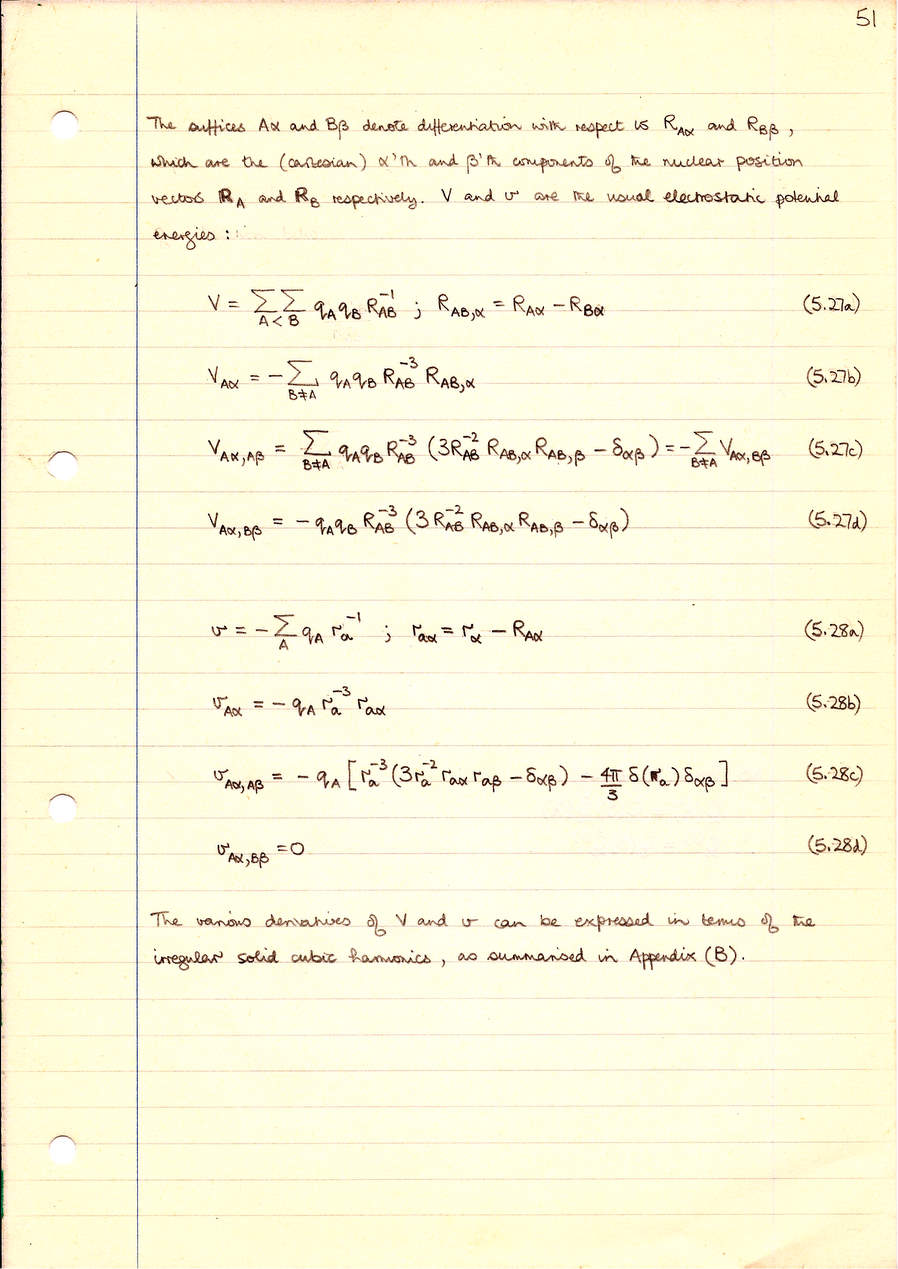 51
The suffices Aα and Bβ denote differentiation with respect to R_Aα and R_Bβ ,
which are the (cartesian) α'th and β'th components of the nuclear position
vectors R_A and R_B respectively. V and v are the usual electrostatic potential
energies :
V = ∑∑_{A<B} q_A q_B R_AB^{-1} ; R_{AB,α} = R_Aα − R_Bα (5.27a)
V_Aα = − ∑_{B≠A} q_A q_B R_AB^{-3} R_{AB,α} (5.27b)
V_{Aα,Aβ} = ∑_{B≠A} q_A q_B R_AB^{-3} (3R_AB^{-2} R_{AB,α} R_{AB,β} − δ_αβ) = − ∑_{B≠A} V_{Aα,Bβ} (5.27c)
V_{Aα,Bβ} = − q_A q_B R_AB^{-3} (3 R_AB^{-2} R_{AB,α} R_{AB,β} − δ_αβ) (5.27d)
v = − ∑_A q_A r_a^{-1} ; r_aα = r_α − R_Aα (5.28a)
v_Aα = − q_A r_a^{-3} r_aα (5.28b)
v_{Aα,Aβ} = − q_A [ r_a^{-3} (3r_a^{-2} r_aα r_aβ − δ_αβ) − 4π/3 δ(r_a) δ_αβ ] (5.28c)
v_{Aα,Bβ} = 0 (5.28d)
The various derivatives of V and v can be expressed in terms of the
irregular solid cubic harmonics , as summarised in Appendix (B).